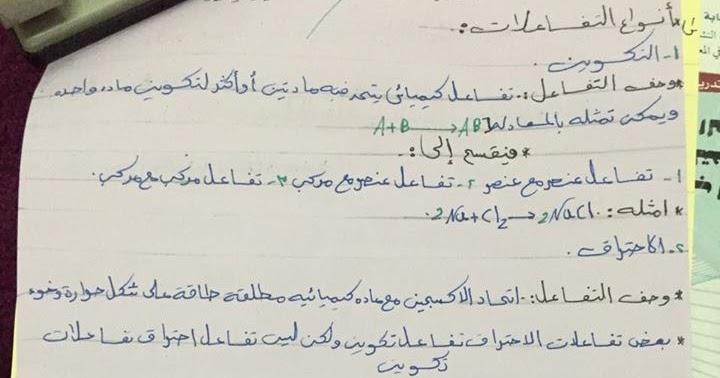 *أنواع التفاعلات:.
١- التكوين.
*وصف التفاعل:. تفاعل كيميائي يتحد فيه مادتين أو أكثر لتكوين ماده واحده
ويمكن تمثله بالمعادله A+B → AB
*وينقسم إلى:.
١- تفاعل عنصر مع عنصر ٢- تفاعل عنصر مع مركب ٣- تفاعل مركب مع مركب.
* امثله: 2Na+Cl2 → 2NaCl.
٢- الاحتراق.
*وصف التفاعل:. اتحاد الاكسجين مع ماده كيميائيه مطلقه طاقة على شكل حرارة وضوء
* بعض تفاعلات الاحتراق تفاعل تكوين ولكن ليس تفاعل احتراق تفاعلات
تكوين